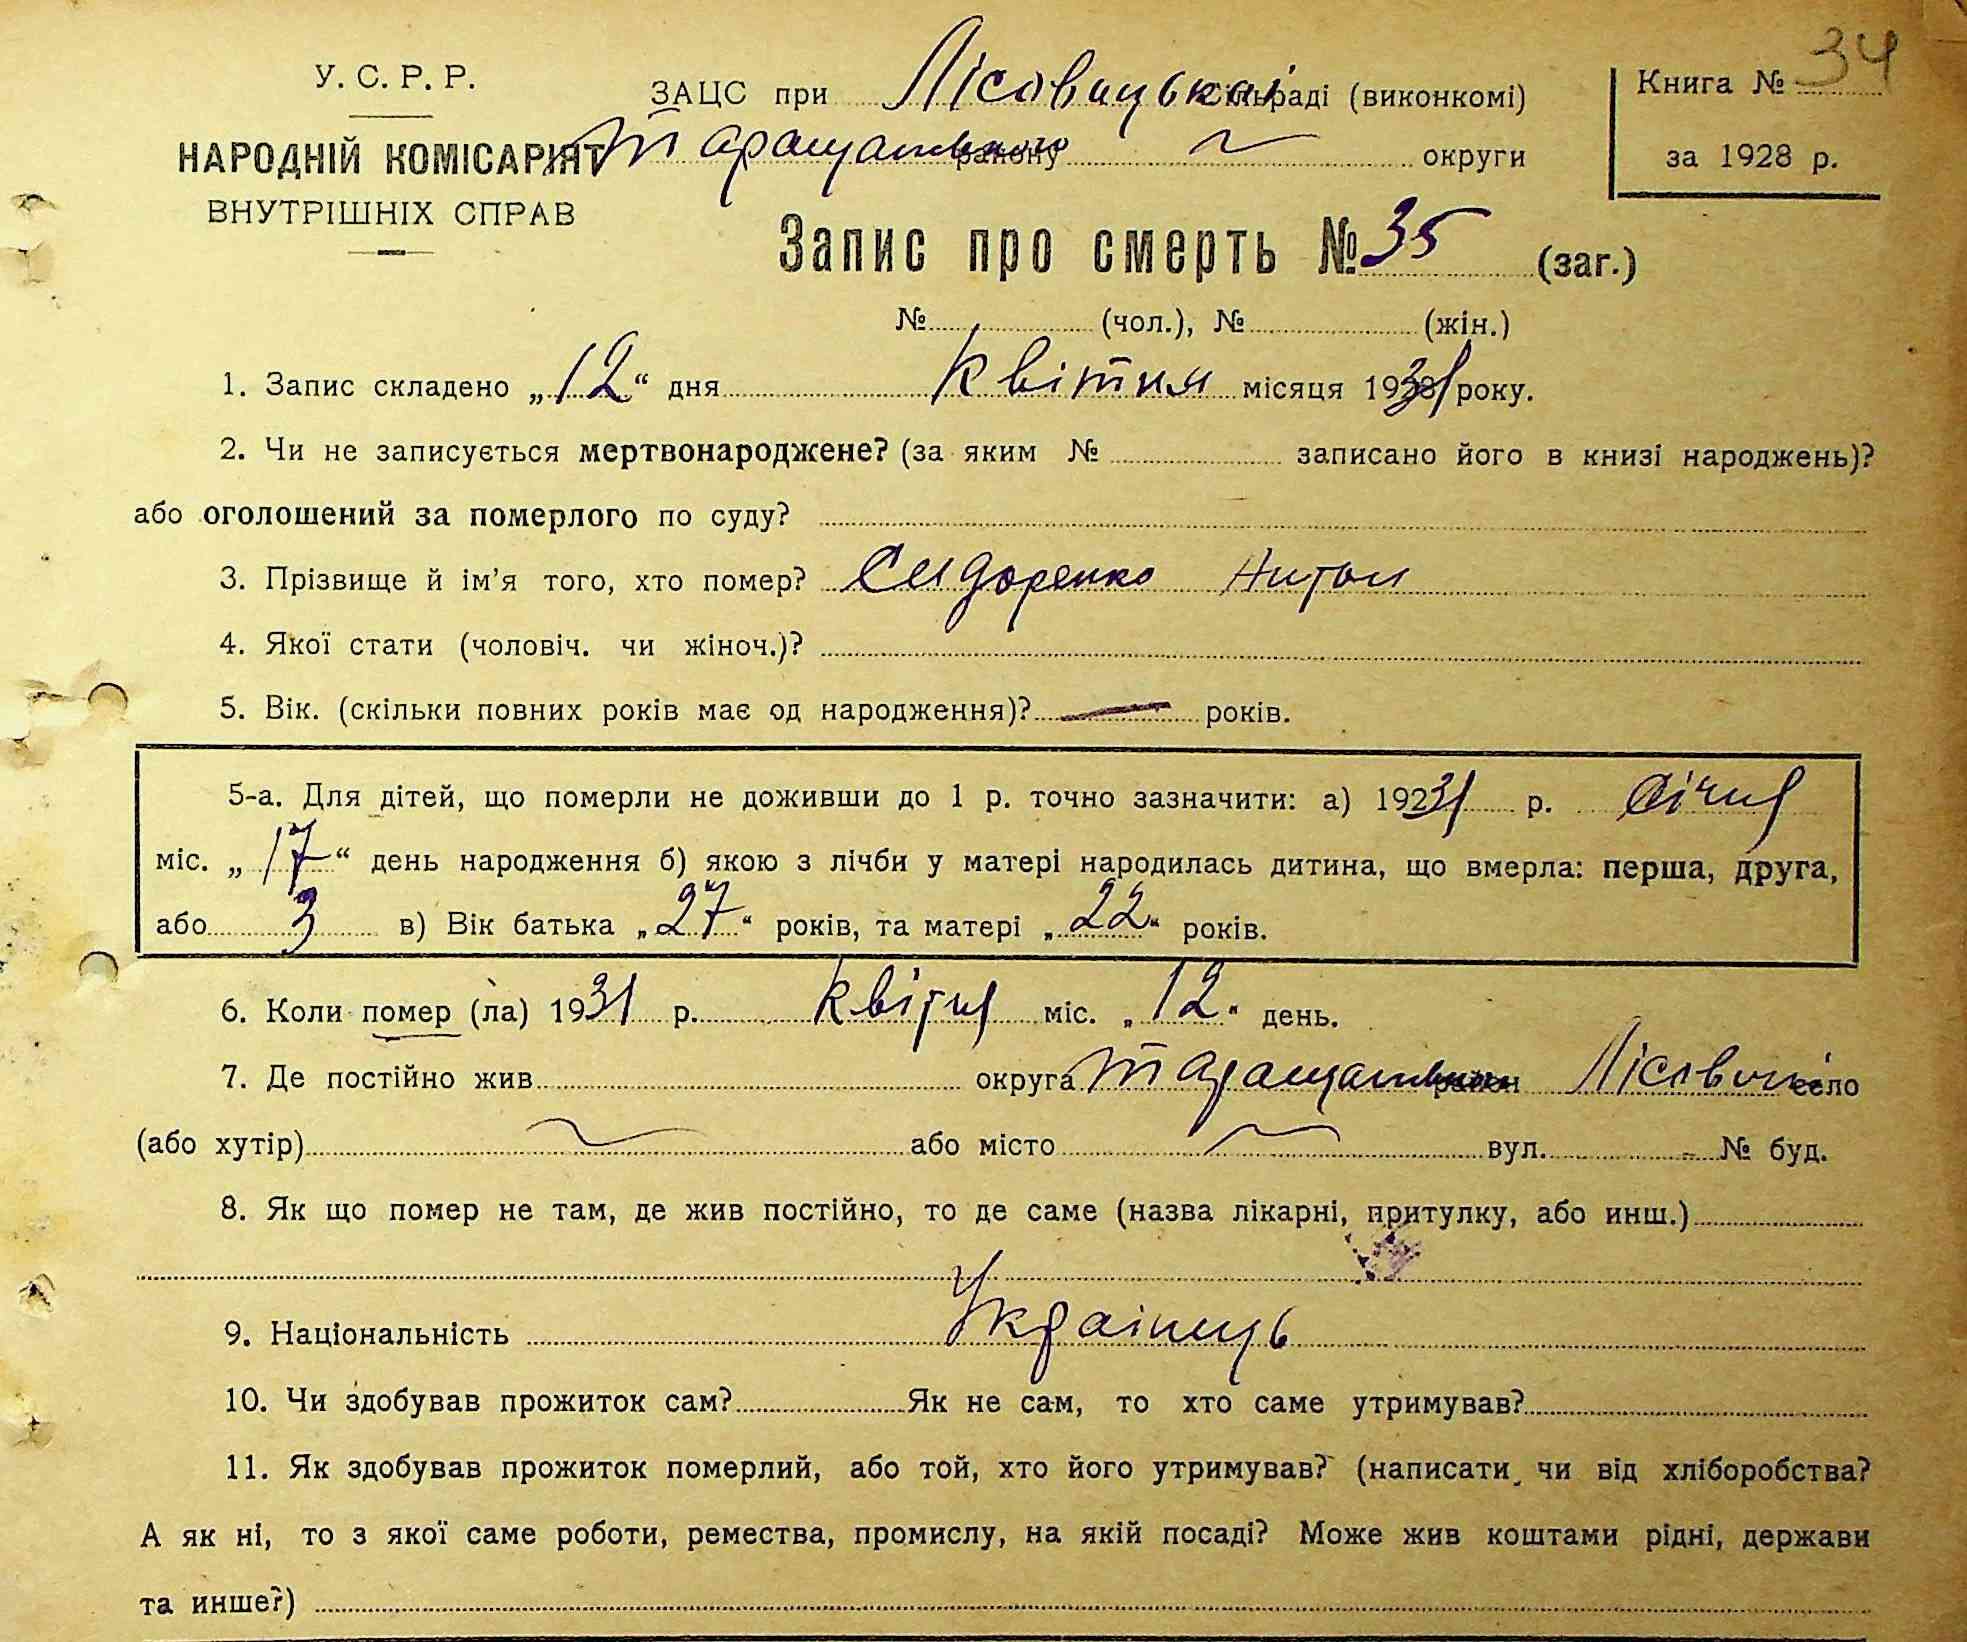 У. С. Р. Р.
НАРОДНІЙ КОМІСАРІЯТ
ВНУТРІШНІХ СПРАВ
ЗАЦС при Лісовицькій сільраді (виконкомі)
Таращанського району округи
Книга № 34
за 1928 р.
Запис про смерть № 35 (заг.)
№ (чол.), № (жін.)
1. Запис складено „12“ дня квітня місяця 1931 року.
2. Чи не записується мертвонароджене? (за яким № записано його в книзі народжень)?
або оголошений за померлого по суду?
3. Прізвище й ім’я того, хто помер? Сидоренко Антон
4. Якої стати (чоловіч. чи жіноч.)?
5. Вік. (скільки повних років має од народження)? — років.
5-а. Для дітей, що померли не доживши до 1 р. точно зазначити: а) 1931 р. січня
міс. „17“ день народження б) якою з лічби у матері народилась дитина, що вмерла: перша, друга,
або 3 в) Вік батька „27“ років, та матері „22“ років.
6. Коли помер (ла) 1931 р. квітня міс. „12“ день.
7. Де постійно жив округа Таращанський район Лісовичі село
(або хутір) або місто вул. № буд.
8. Як що помер не там, де жив постійно, то де саме (назва лікарні, притулку, або инш.)
9. Національність Українець
10. Чи здобував прожиток сам? Як не сам, то хто саме утримував?
11. Як здобував прожиток померлий, або той, хто його утримував? (написати чи від хліборобства?
А як ні, то з якої саме роботи, ремества, промислу, на якій посаді? Може жив коштами рідні, держави
та инше?)